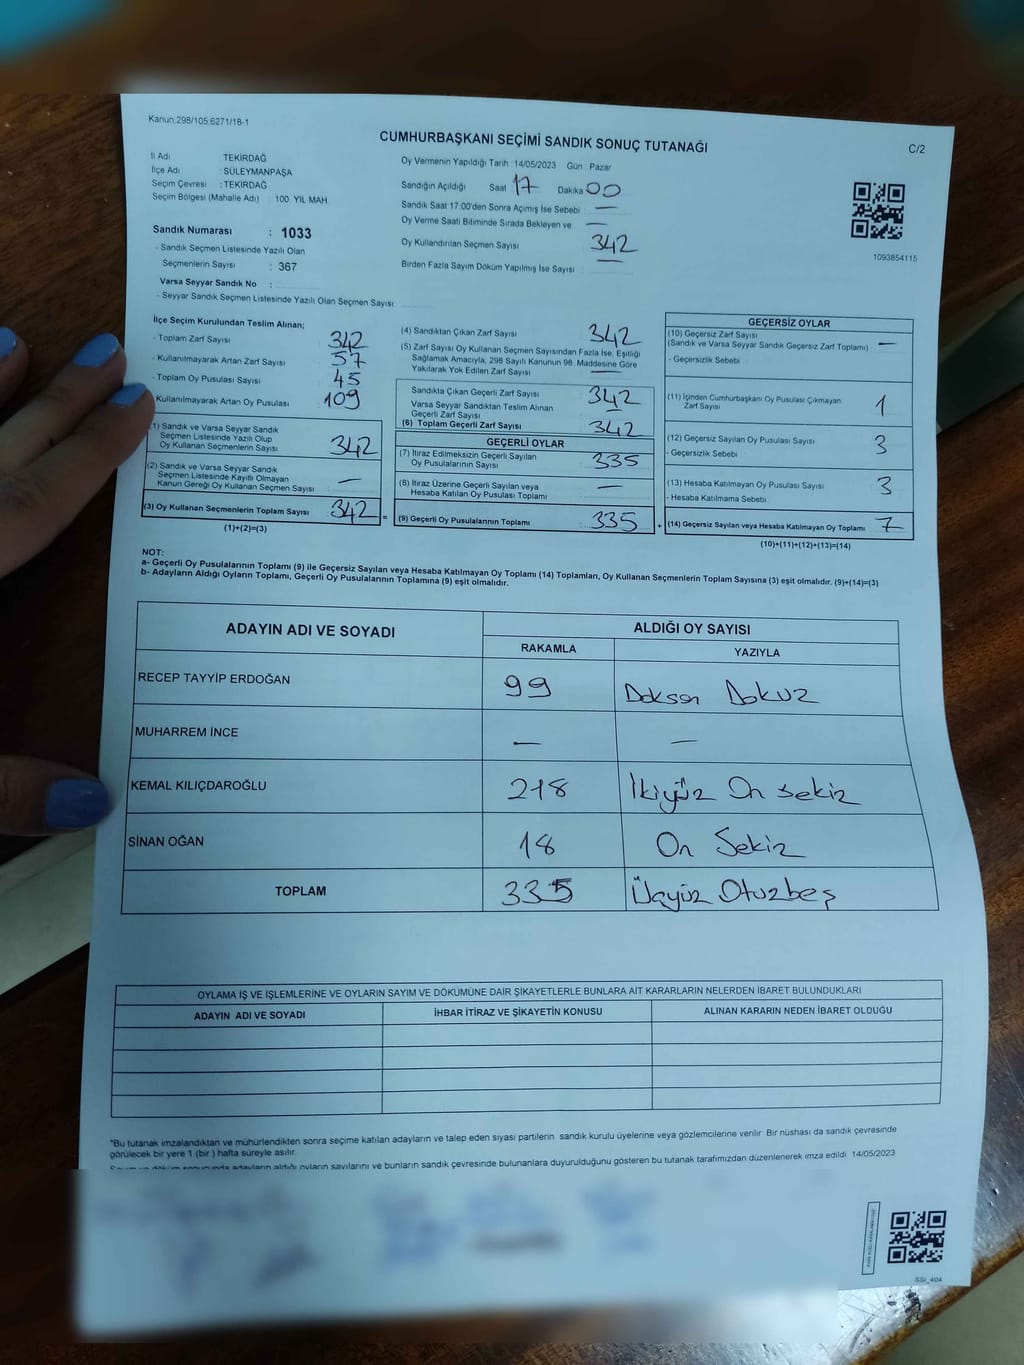 Kanun:298/105;6271/18-1
CUMHURBAŞKANI SEÇİMİ SANDIK SONUÇ TUTANAĞI
C/2
İl Adı TEKİRDAĞ
İlçe Adı : SÜLEYMANPAŞA
Seçim Çevresi : TEKİRDAĞ
Seçim Bölgesi (Mahalle Adı) : 100. YIL MAH.
Sandık Numarası : 1033
- Sandık Seçmen Listesinde Yazılı Olan
Seçmenlerin Sayısı : 367
Varsa Seyyar Sandık No :
- Seyyar Sandık Seçmen Listesinde Yazılı Olan Seçmen Sayısı:
Oy Vermenin Yapıldığı Tarih 14/05/2023 Gün : Pazar
Sandığın Açıldığı Saat 17 Dakika 00
Sandık Saat 17:00'den Sonra Açımış İse Sebebi —
Oy Verme Saati Bitiminde Sırada Bekleyen ve —
Oy Kullandırılan Seçmen Sayısı 342
Birden Fazla Sayım Döküm Yapılmış İse Sayısı
1093854115
İlçe Seçim Kurulundan Teslim Alınan;
- Toplam Zarf Sayısı 342
- Kullanılmayarak Artan Zarf Sayısı 57
- Toplam Oy Pusulası Sayısı 45
Kullanılmayarak Artan Oy Pusulası 109
(1) Sandık ve Varsa Seyyar Sandık
Seçmen Listesinde Yazılı Olup
Oy Kullanan Seçmenlerin Sayısı 342
(2) Sandık ve Varsa Seyyar Sandık
Seçmen Listesinde Kayıtlı Olmayan
Kanun Gereği Oy Kullanan Seçmen Sayısı —
(3) Oy Kullanan Seçmenlerin Toplam Sayısı 342
(1)+(2)=(3)
(4) Sandıktan Çıkan Zarf Sayısı 342
(5) Zarf Sayısı Oy Kullanan Seçmen Sayısından Fazla İse, Eşitliği
Sağlamak Amacıyla, 298 Sayılı Kanunun 98. Maddesine Göre
Yakılarak Yok Edilen Zarf Sayısı —
Sandıkta Çıkan Geçerli Zarf Sayısı 342
Varsa Seyyar Sandıktan Teslim Alınan
Geçerli Zarf Sayısı
(6) Toplam Geçerli Zarf Sayısı 342
GEÇERLİ OYLAR
(7) İtiraz Edilmeksizin Geçerli Sayılan
Oy Pusulalarının Sayısı 335
(8) İtiraz Üzerine Geçerli Sayılan veya
Hesaba Katılan Oy Pusulası Toplamı —
= (9) Geçerli Oy Pusulalarının Toplamı 335
GEÇERSİZ OYLAR
(10) Geçersiz Zarf Sayısı
(Sandık ve Varsa Seyyar Sandık Geçersiz Zarf Toplamı) —
- Geçersizlik Sebebi
(11) İçinden Cumhurbaşkanı Oy Pusulası Çıkmayan
Zarf Sayısı 1
(12) Geçersiz Sayılan Oy Pusulası Sayısı 3
- Geçersizlik Sebebi
(13) Hesaba Katılmayan Oy Pusulası Sayısı 3
- Hesaba Katılmama Sebebi
+ (14) Geçersiz Sayılan veya Hesaba Katılmayan Oy Toplamı 7
(10)+(11)+(12)+(13)=(14)
NOT:
a- Geçerli Oy Pusulalarının Toplamı (9) ile Geçersiz Sayılan veya Hesaba Katılmayan Oy Toplamı (14) Toplamları, Oy Kullanan Seçmenlerin Toplam Sayısına (3) eşit olmalıdır. (9)+(14)=(3)
b- Adayların Aldığı Oyların Toplamı, Geçerli Oy Pusulalarının Toplamına (9) eşit olmalıdır.
ADAYIN ADI VE SOYADI
ALDIĞI OY SAYISI
RAKAMLA YAZIYLA
RECEP TAYYİP ERDOĞAN 99 Doksan Dokuz
MUHARREM İNCE — —
KEMAL KILIÇDAROĞLU 218 İkiyüz On sekiz
SİNAN OĞAN 18 On Sekiz
TOPLAM 335 Üçyüz Otuzbeş
OYLAMA İŞ VE İŞLEMLERİNE VE OYLARIN SAYIM VE DÖKÜMÜNE DAİR ŞİKAYETLERLE BUNLARA AİT KARARLARIN NELERDEN İBARET BULUNDUKLARI
ADAYIN ADI VE SOYADI İHBAR İTİRAZ VE ŞİKAYETİN KONUSU ALINAN KARARIN NEDEN İBARET OLDUĞU
*Bu tutanak imzalandıktan ve mühürlendikten sonra seçime katılan adayların ve talep eden siyasi partilerin sandık kurulu üyelerine veya gözlemcilerine verilir. Bir nüshası da sandık çevresinde
görülecek bir yere 1 (bir ) hafta süreyle asılır.
Sayım ve döküm sonucunda adayların aldığı oyların sayılarını ve bunların sandık çevresinde bulunanlara duyurulduğunu gösteren bu tutanak tarafımızdan düzenlenerek imza edildi. 14/05/2023
SSI_404